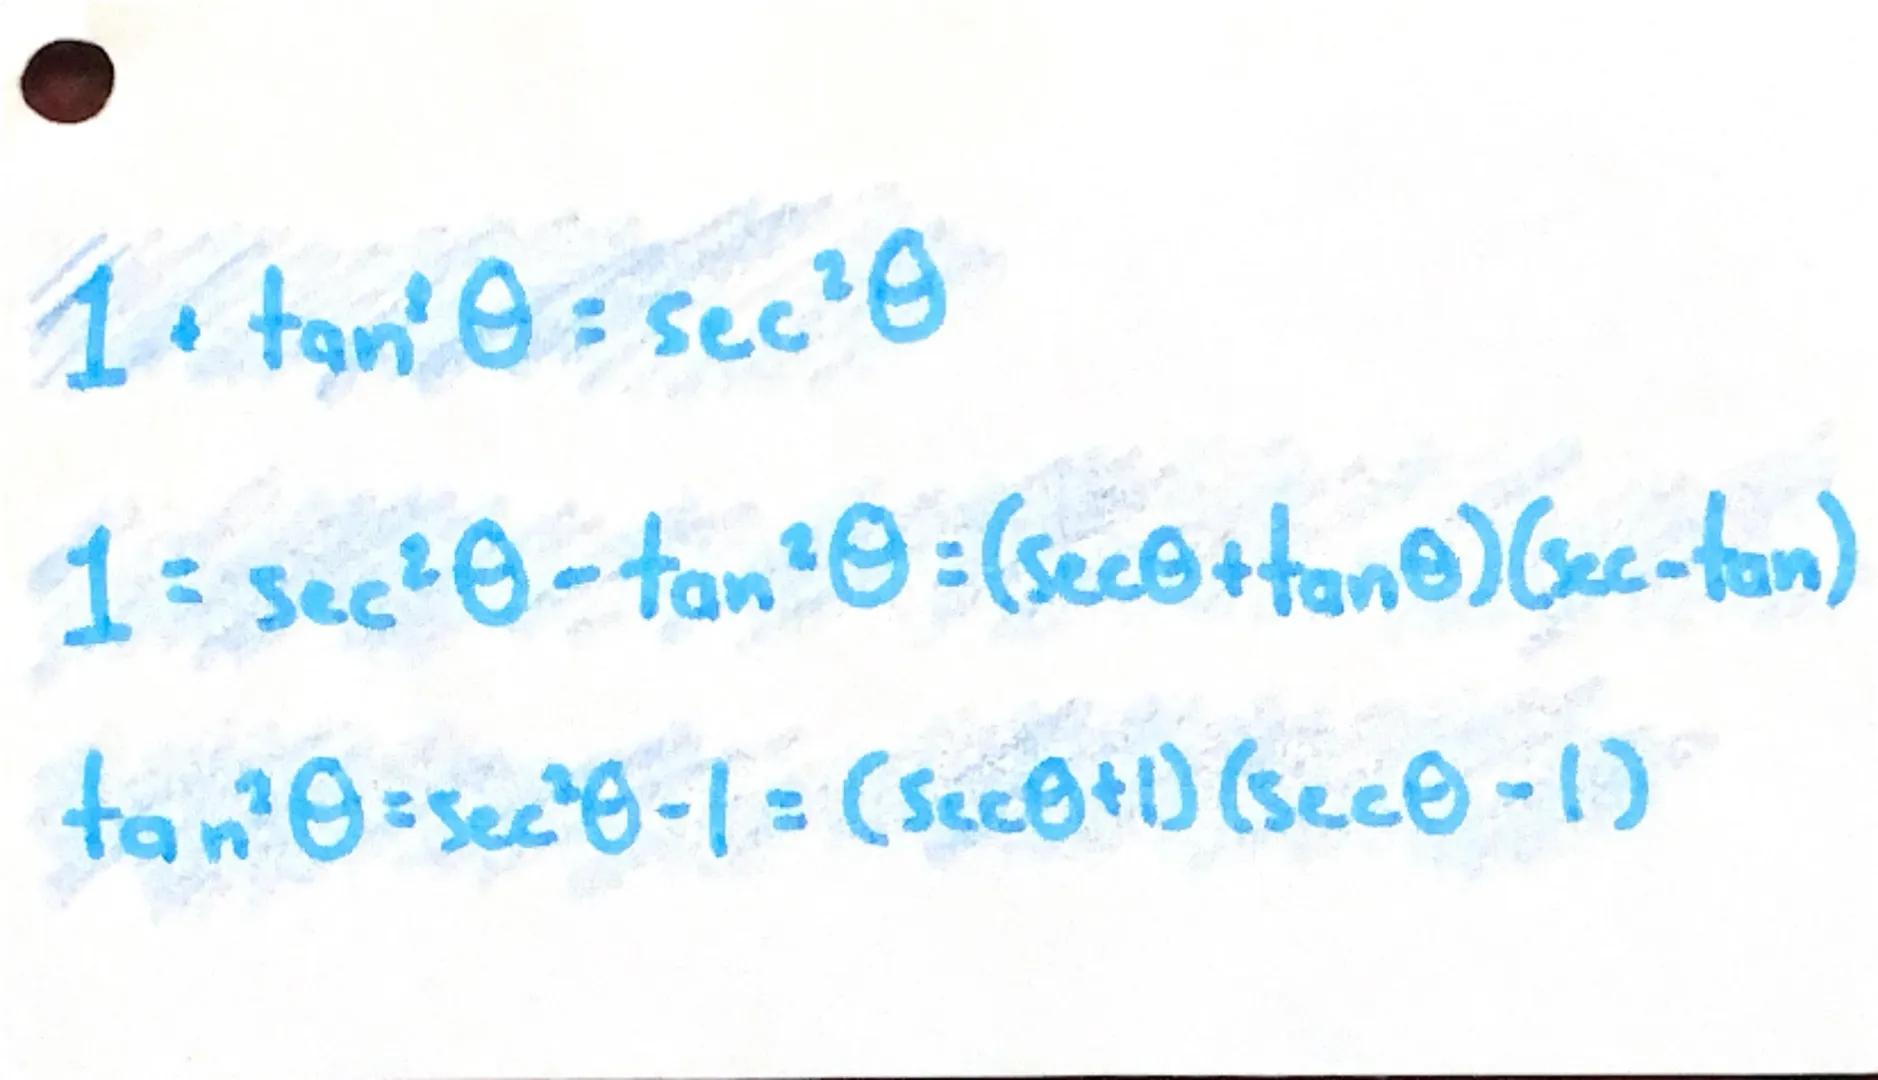 1 + tan²θ = sec²θ
1 = sec²θ - tan²θ = (secθ + tanθ)(sec - tan)
tan²θ = sec²θ - 1 = (secθ + 1)(secθ - 1)